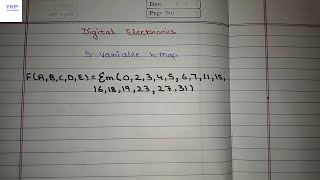 YKP
Date / /
Page No
Digital Electronics
5 Variable k-map
F(A,B,C,D,E) = Σm(0,2,3,4,5,6,7,11,15,
16,18,19,23,27,31)